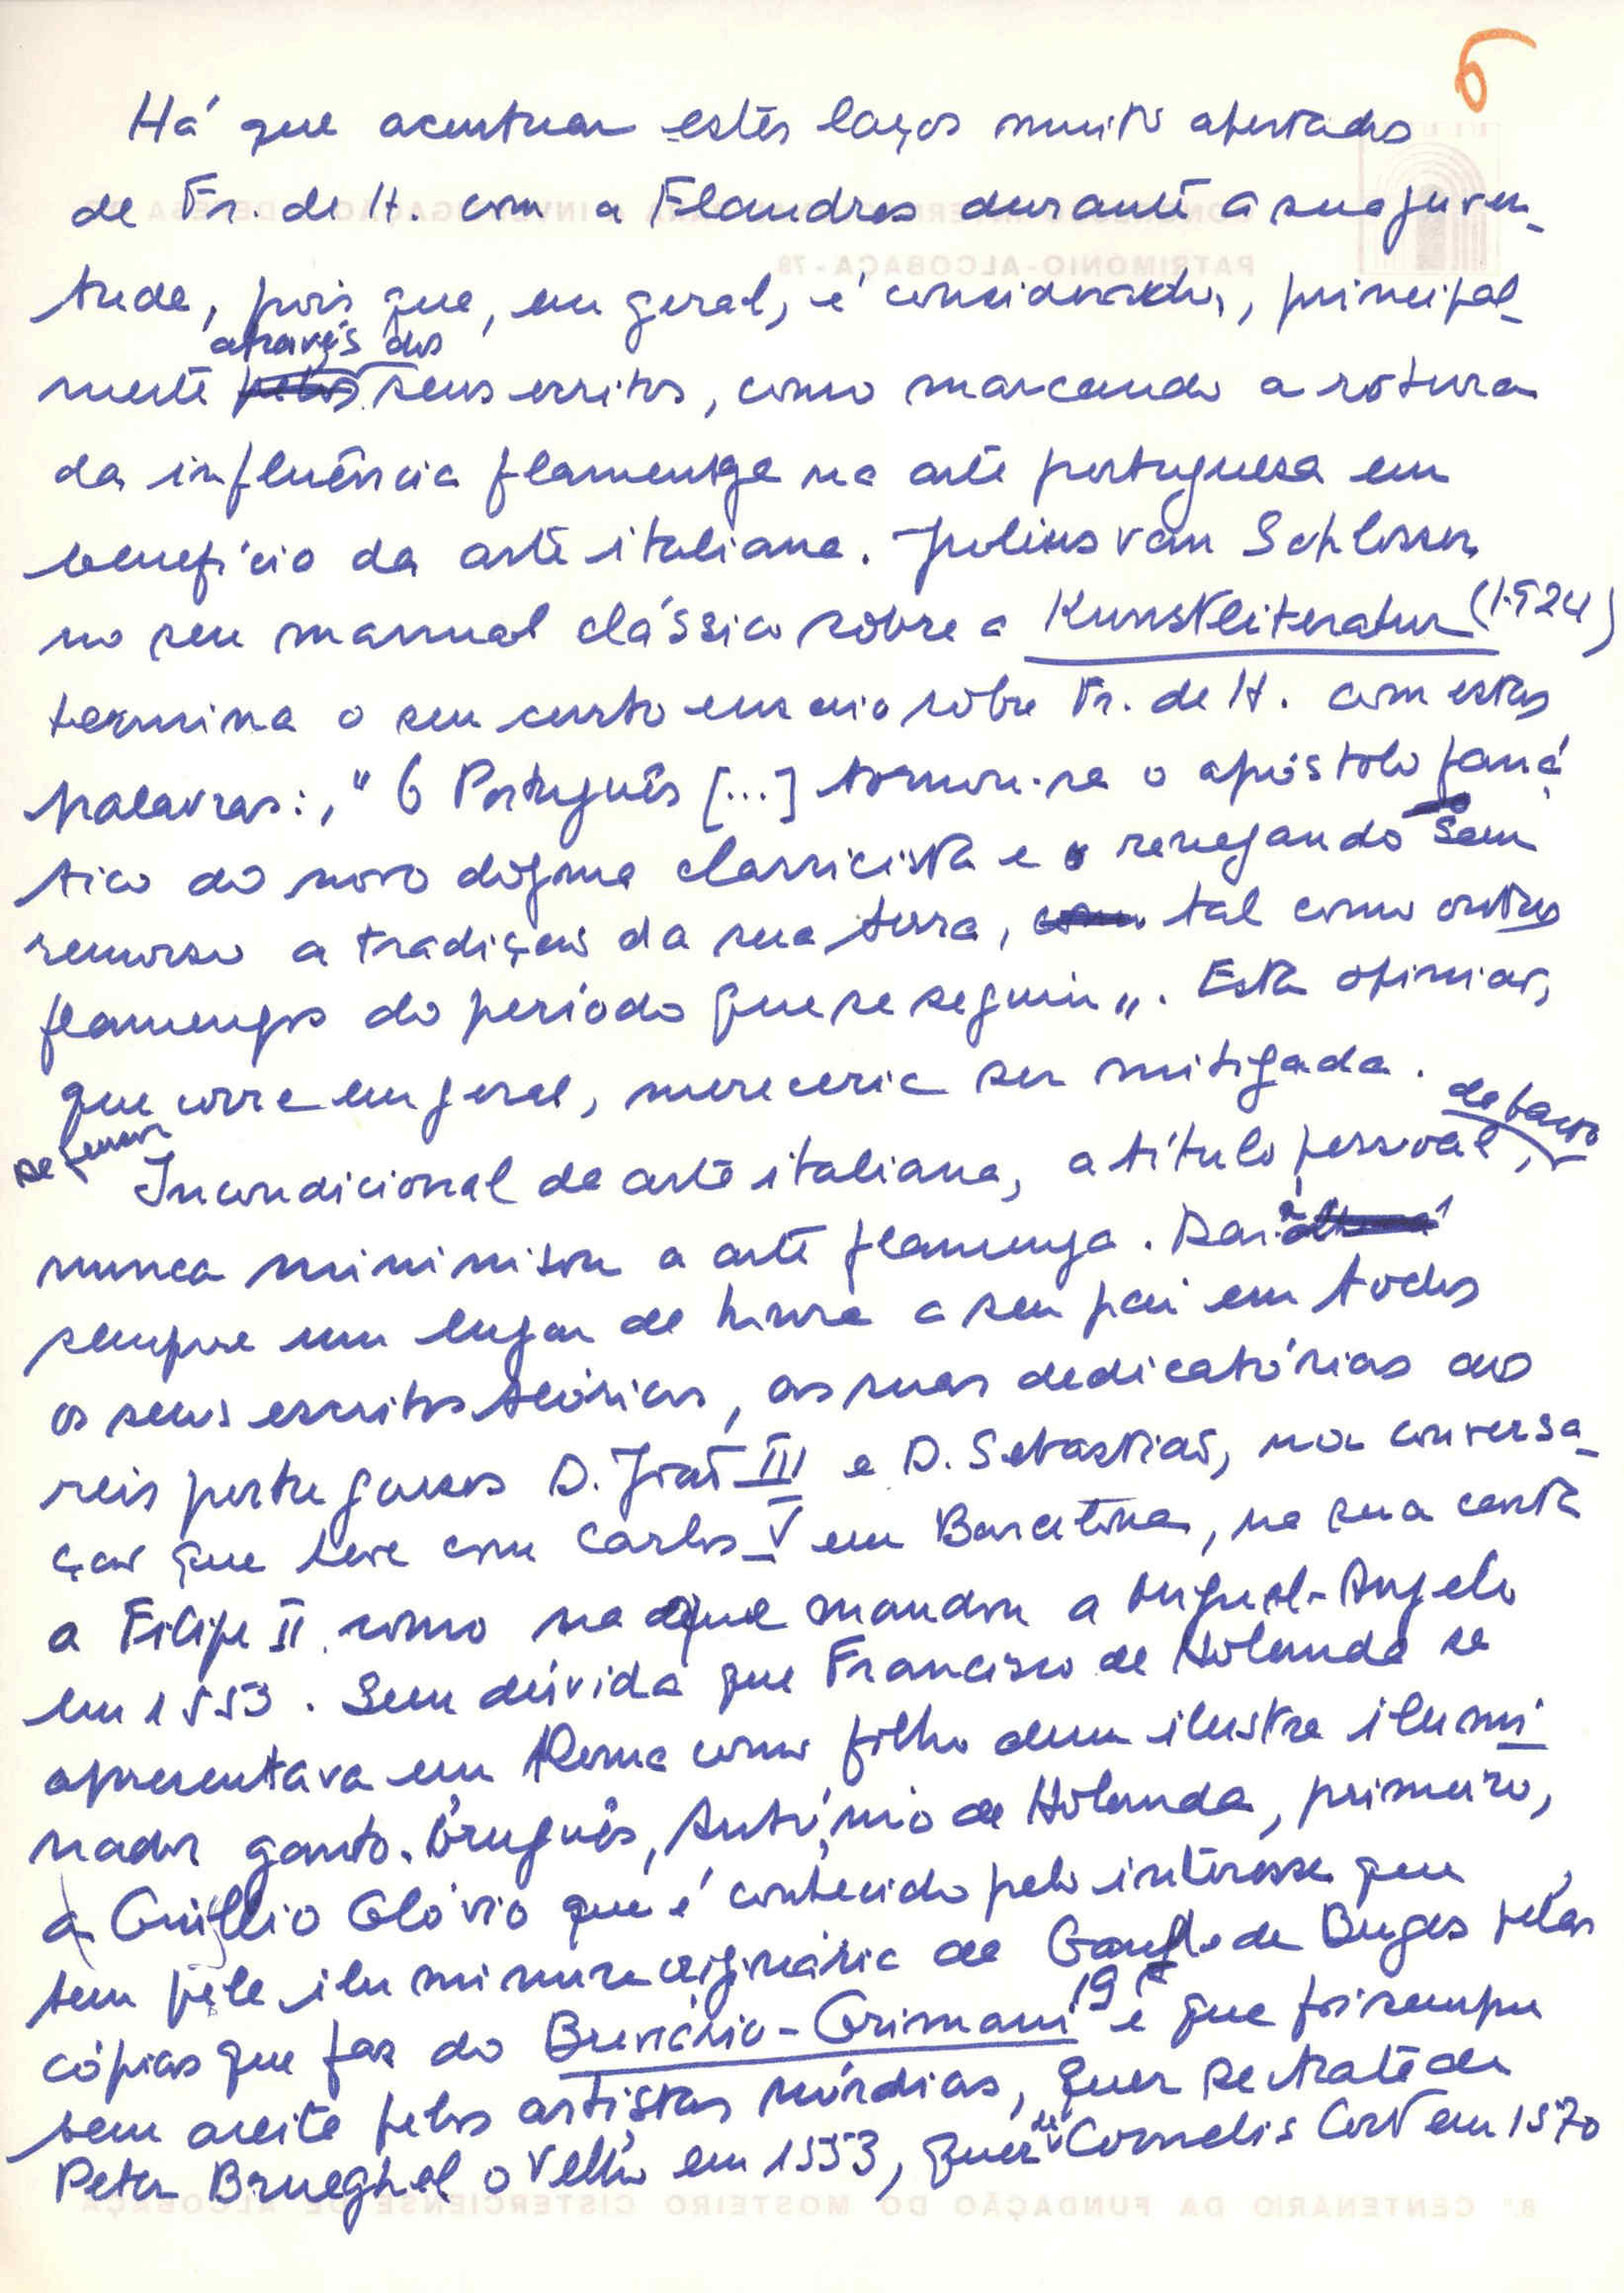 6
Há que acentuar estes laços muito apertados
de Fr. de H. com a Flandres durante a sua juven-
tude, pois que, em geral, é considerado, principal-
mente através dos seus escritos, como marcando a rotura
da influência flamenga na arte portuguesa em
benefício da arte italiana. Julius van Schlosser,
no seu manual clássico sobre a Kunstliteratur (1924)
termina o seu curto ensaio sobre Fr. de H. com estas
palavras: "O Português [...] tornou-se o apóstolo faná
tico do novo dogma classicista e renegando sem
remorso a tradição da sua terra, tal como outros
flamengos do período que se seguiu". Esta opinião,
que corre em geral, mereceria ser mitigada.
Defensor Incondicional da arte italiana, a título pessoal, de facto
nunca minimisou a arte flamenga. Dará
sempre um lugar de honra a seu pai em todos
os seus escritos teóricos, as suas dedicatórias aos
reis portugueses D. João III e D. Sebastião, na conversa-
ção que teve com Carlos V em Barcelona, na sua carta
a Filipe II como na que mandou a Miguel-Angelo
em 1553. Sem dúvida que Francisco de Holanda se
apresentava em Roma como filho dum ilustre ilumi
nador ganto-bruguês, António de Holanda, primeiro,
a Guillio Clóvio que é conhecido pelo interesse que
tem pela iluminura originária de Gand e de Buges pelas
cópias que faz do Breviário-Grimani 19 e que foi sempre
bem aceite pelos artistas nórdicos, quer se trate de
Peter Brueghel o Velho em 1553, quer de Cornelis Cort em 1570
PATRIMÓNIO-ALCOBAÇA-78
8.º CENTENÁRIO DA FUNDAÇÃO DO MOSTEIRO CISTERCIENSE DE ALCOBAÇA